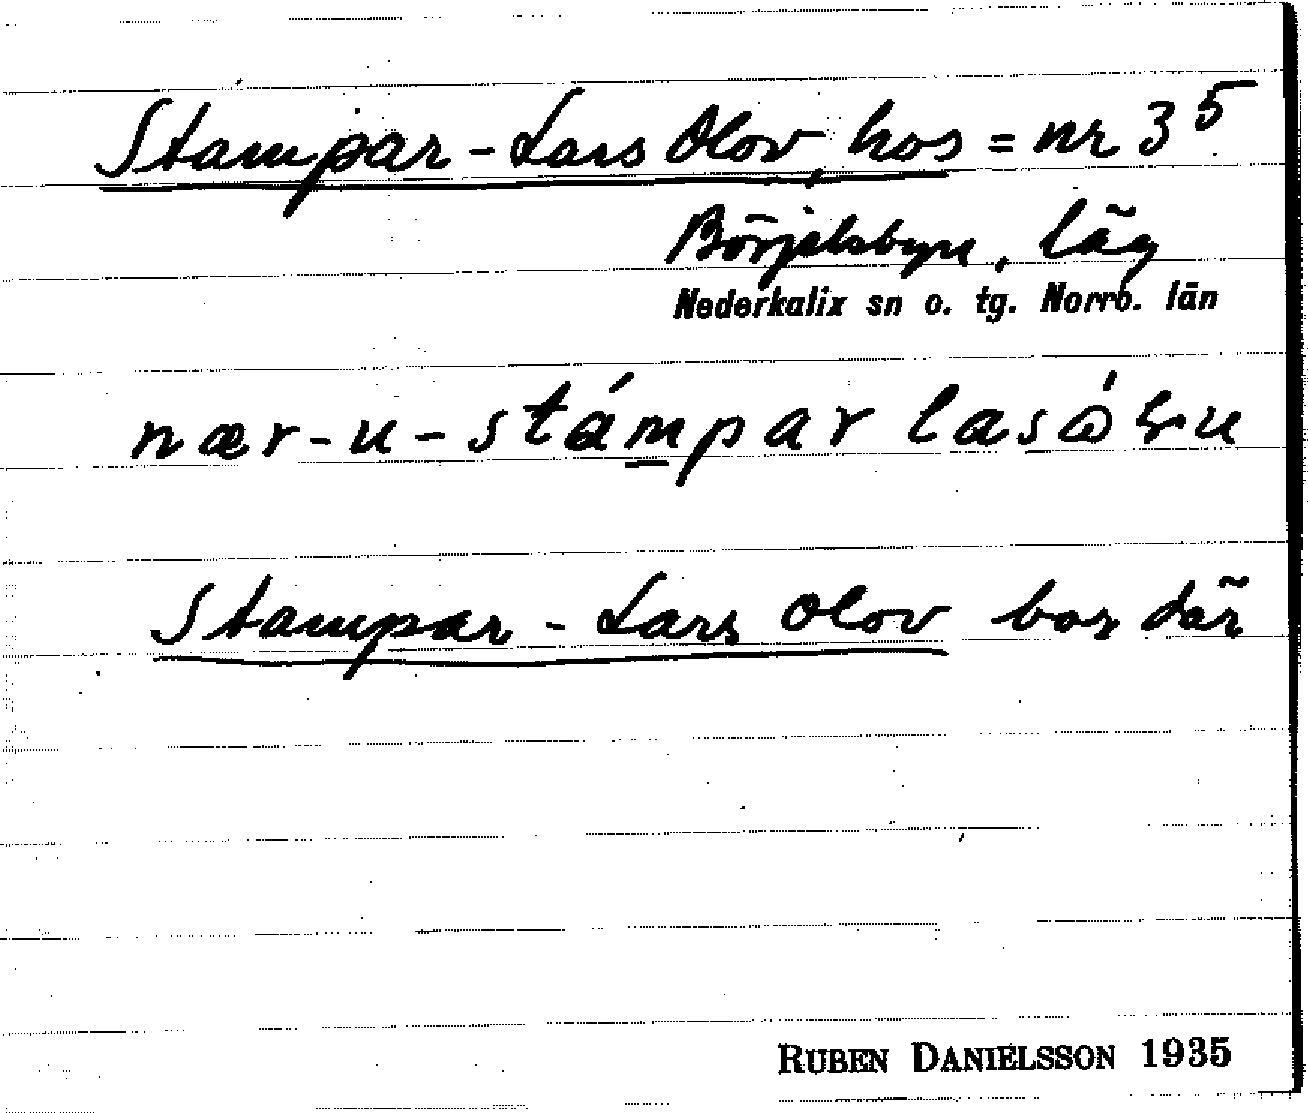 Stampar-Lars Olov, hos = nr 35
Börjelsbyn, läg
Nederkalix sn o. tg. Norrb. län
nær-u-stámpar lasó
Stampar-Lars Olov bor där
RUBEN DANIELSSON 1935